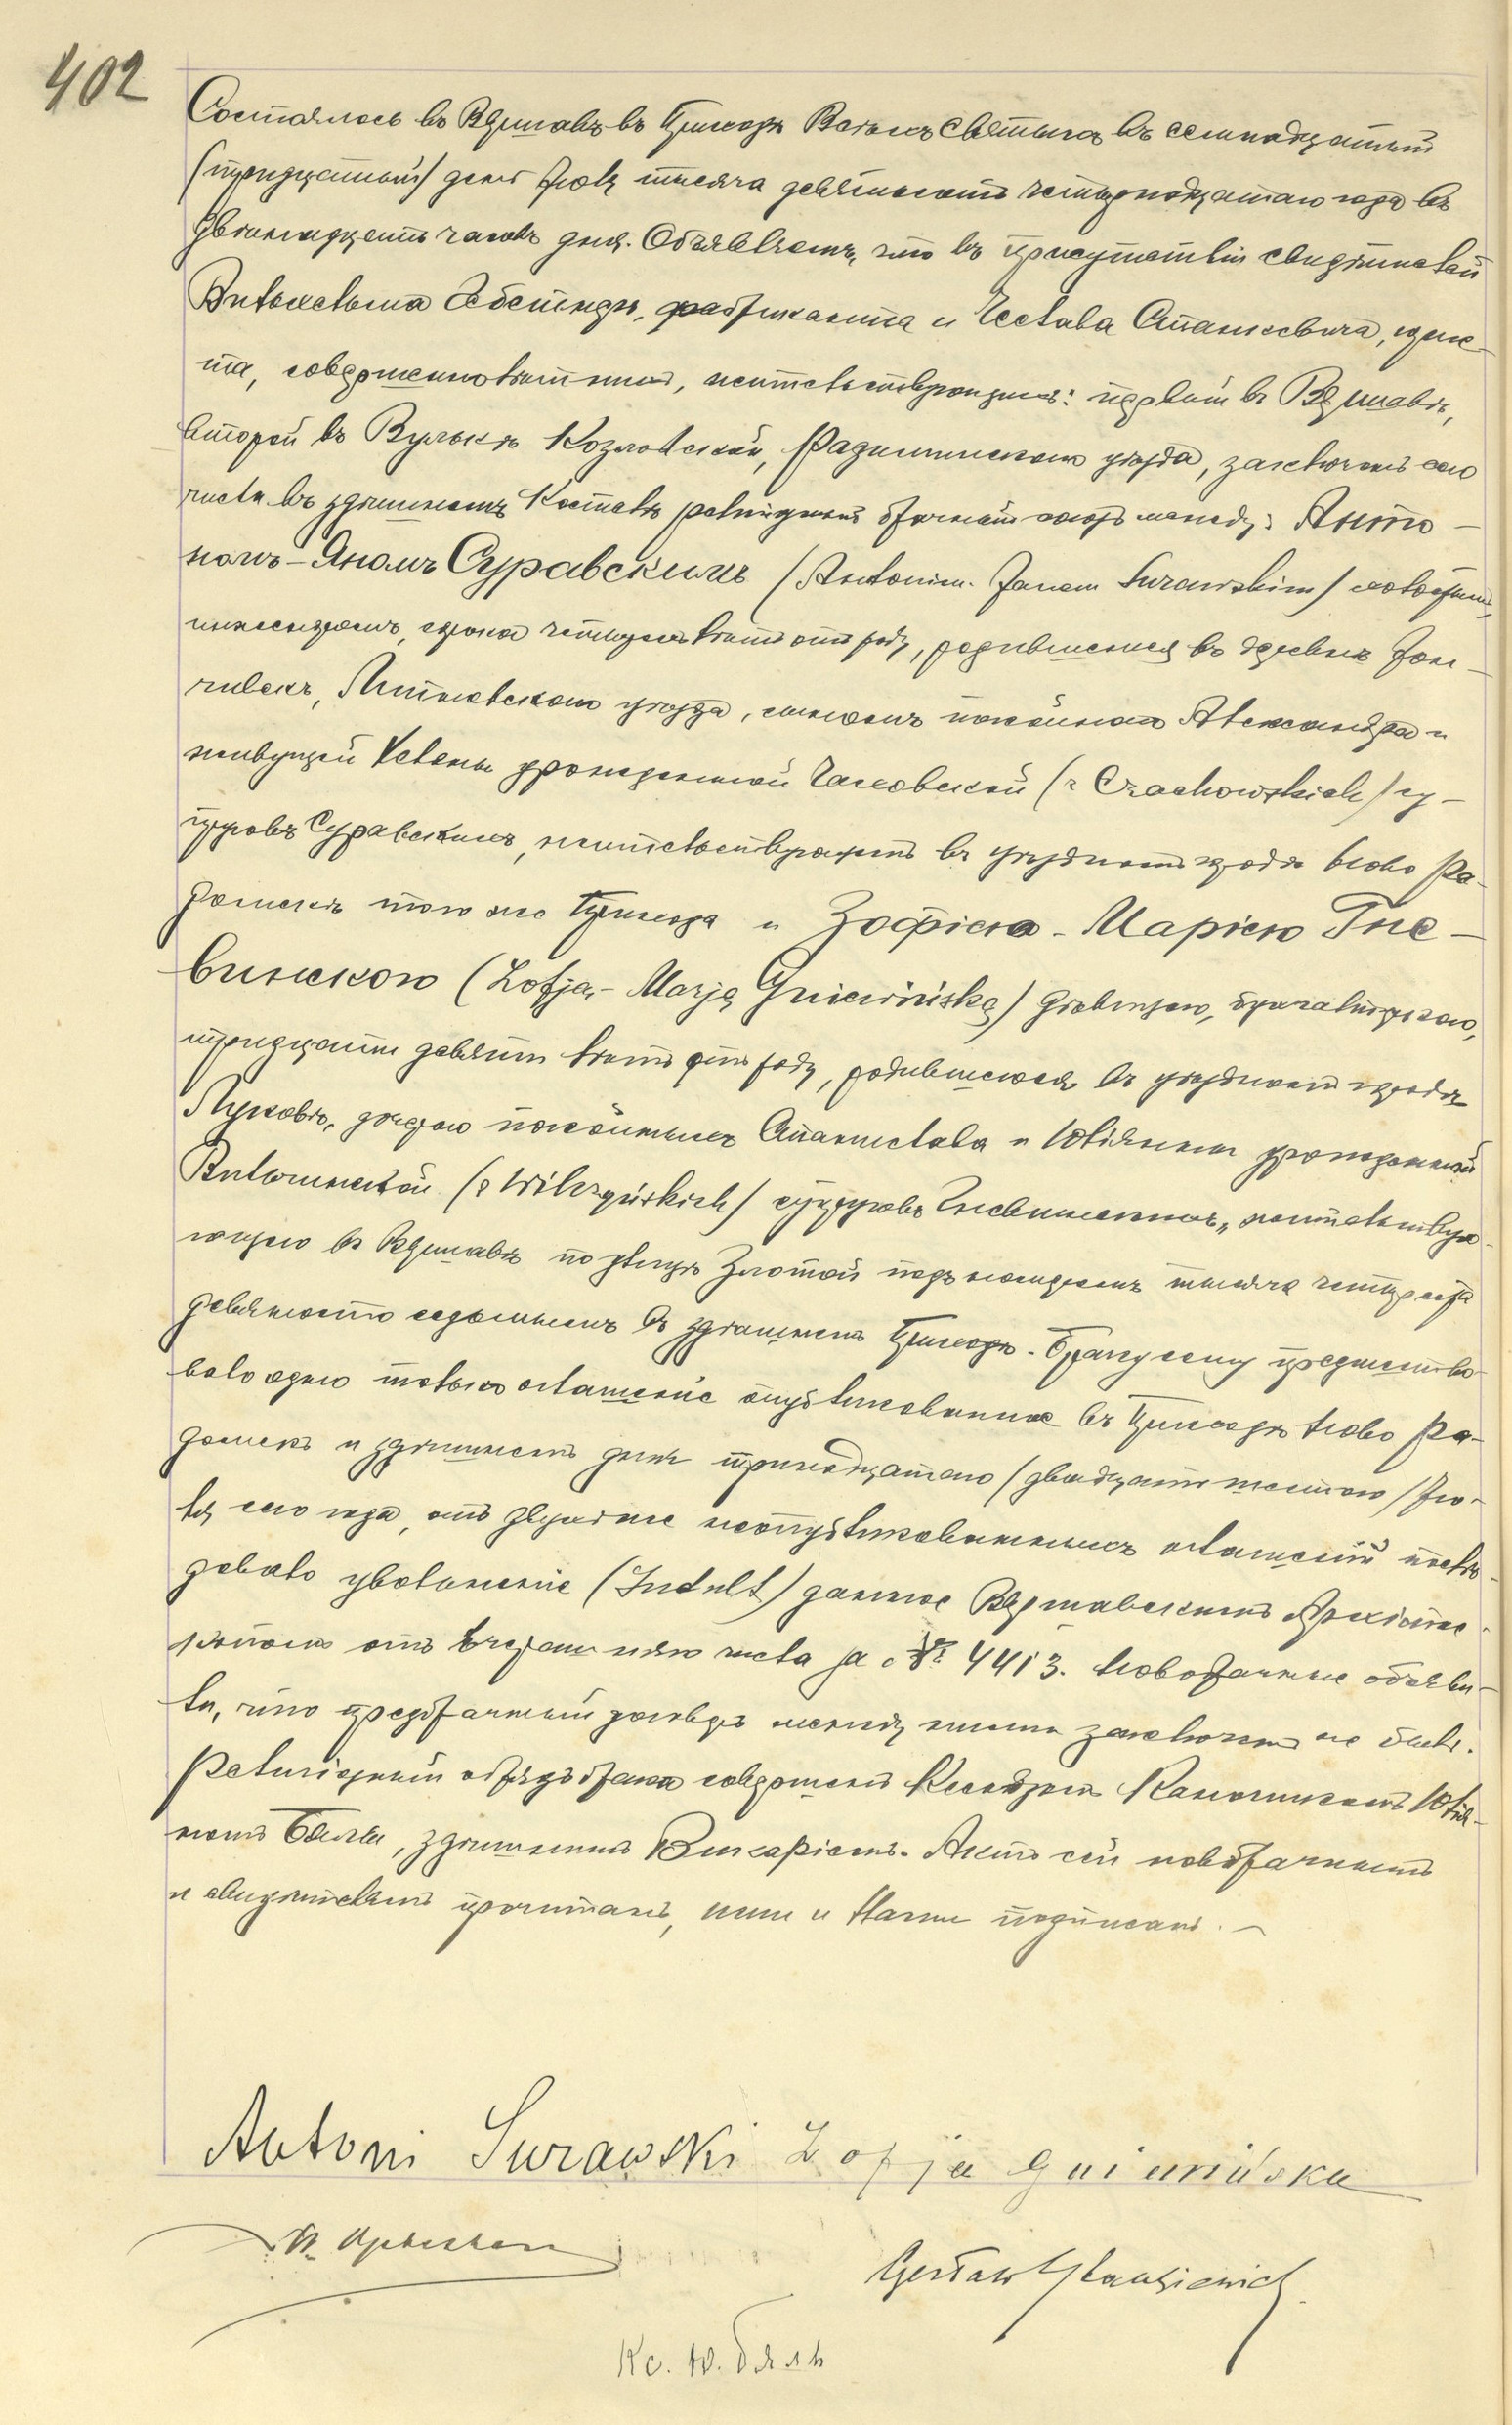 402
Состоялось въ Варшавѣ въ Приходѣ Всѣхъ Святыхъ въ семнадцатый
/тридцатый/ день Іюля тысяча девятьсотъ четырнадцатаго года въ
двѣнадцать часовъ дня. Объявляемъ, что въ присутствіи свидѣтелей
Вильгельма, фабриканта и Чеслава Станкевича,
та, совершеннолѣтнихъ, жительствующихъ: первый въ Варшавѣ,
второй въ Вулькѣ Козловской, Радиминскаго уѣзда, заключенъ сего
числа въ здѣшнемъ Костелѣ религіозный брачный союзъ между: Анто-
номъ-Яномъ Суравскимъ /Antonim-Janem Surawskim/ холостымъ,
инженеромъ, сорока четырехъ лѣтъ отъ роду, родившемся въ деревнѣ
, уѣзда, сыномъ покойнаго Александра и
живущей Хелены урожденной Чаховской (z Czachowskich) су-
пруговъ Суравскихъ, жительствующимъ въ уѣздномъ городѣ Ново Ра-
домскѣ того же Прихода и Зофіею-Маріею Гне-
винскою (Zofją-Marją Gniewińską) дѣвицею,
тридцати девяти лѣтъ отъ роду, родившеюся въ уѣздномъ городѣ
Луковѣ, дочерью покойныхъ Станислава и Юліянны урожденной
Вильчинской (z Wilczyńskich) супруговъ Гневинскихъ, жительству-
ющею въ Варшавѣ по улицѣ Златой подъ номеромъ тысяча четыреста
девяносто седьмымъ въ здѣшнемъ Приходѣ. Браку сему предшество-
вало одно только оглашеніе опубликованное въ Приходѣ Ново Ра-
домскъ и здѣшнемъ дня тринадцатаго /двадцать шестого/ Ію-
ля сего года, отъ двухъ же неопубликованныхъ оглашеній послѣ-
довало увольненіе (Indult) данное Варшавскимъ Архіепис-
копомъ отъ вчерашняго числа за № 4413. Новобрачные объяви-
ли, что предбрачный договоръ между ними заключенъ не былъ.
Религіозный обрядъ брака совершенъ Ксендзомъ Каноникомъ Юлія-
номъ Бялы, здѣшнимъ Викаріемъ. Актъ сей новобрачнымъ
и свидѣтелямъ прочитанъ, ими и Нами подписанъ.
Antoni Surawski Zofja Gniewińska
Czesław Stankiewicz
Кс. Ю. Бялы